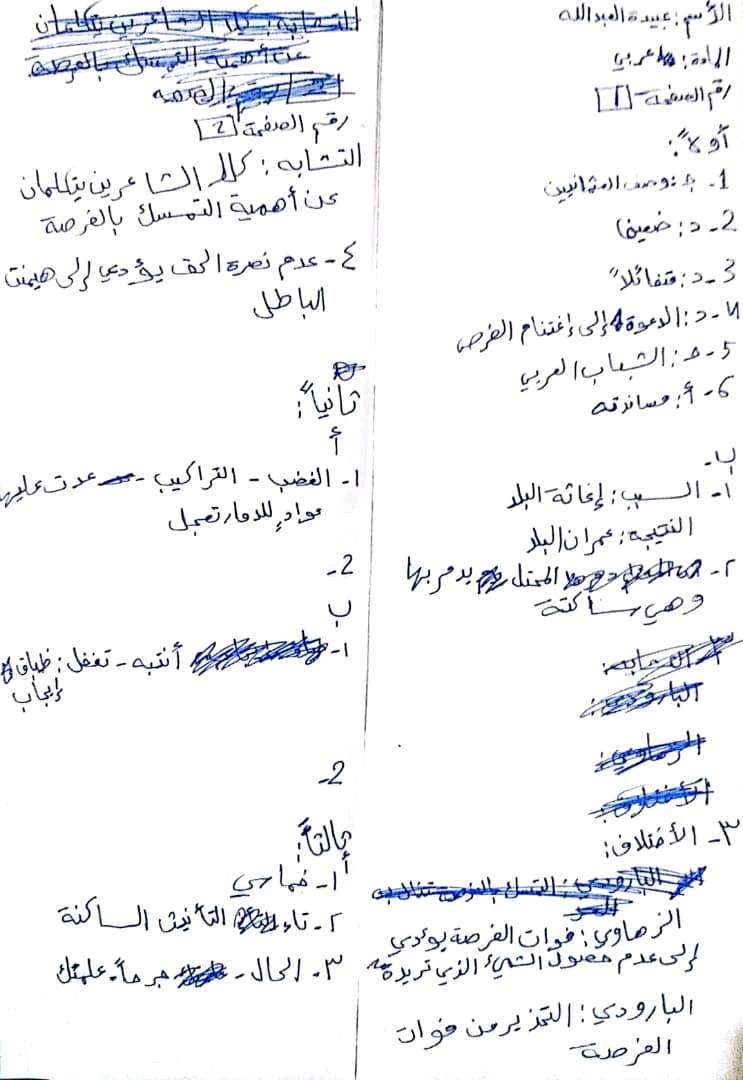 الأسم: عبيدة العبدالله
المادة: عربي
رقم الصفحة - 1
أولاً:
1- ج: وصف العثمانيين
2- د: ضعيفا
3- د: متفائلاً
4- د: الدعوة إلى إغتنام الفرص
5- د: الشباب العربي
6- أ: مساندته
ب-
١- السبب: إغاثة البلد
النتيجة: عمران البلد
٢- المحتل يدمر بها
وهي ساكتة
٣- الأختلاف:
الزهاوي: فوات الفرصة يؤدي
إلى عدم حصول الشيء الذي تريده
البارودي: التحذير من فوات
الفرصة
رقم الصفحة 2
التشابه: كلا الشاعرين يتكلمان
عن أهمية التمسك بالفرصة
٤- عدم نصرة الحق يؤدي إلى هيمنت
الباطل
ثانياً:
أ
١- الغضب - التراكيب - عدت عليها
عوادٍ للدمار تعجل
2-
ب
١- أنتبه - تغفل: طباق
إيجاب
2-
ثالثاً:
أ
١- خماسي
٢- تاء التأنيث الساكنة
٣- الحال -